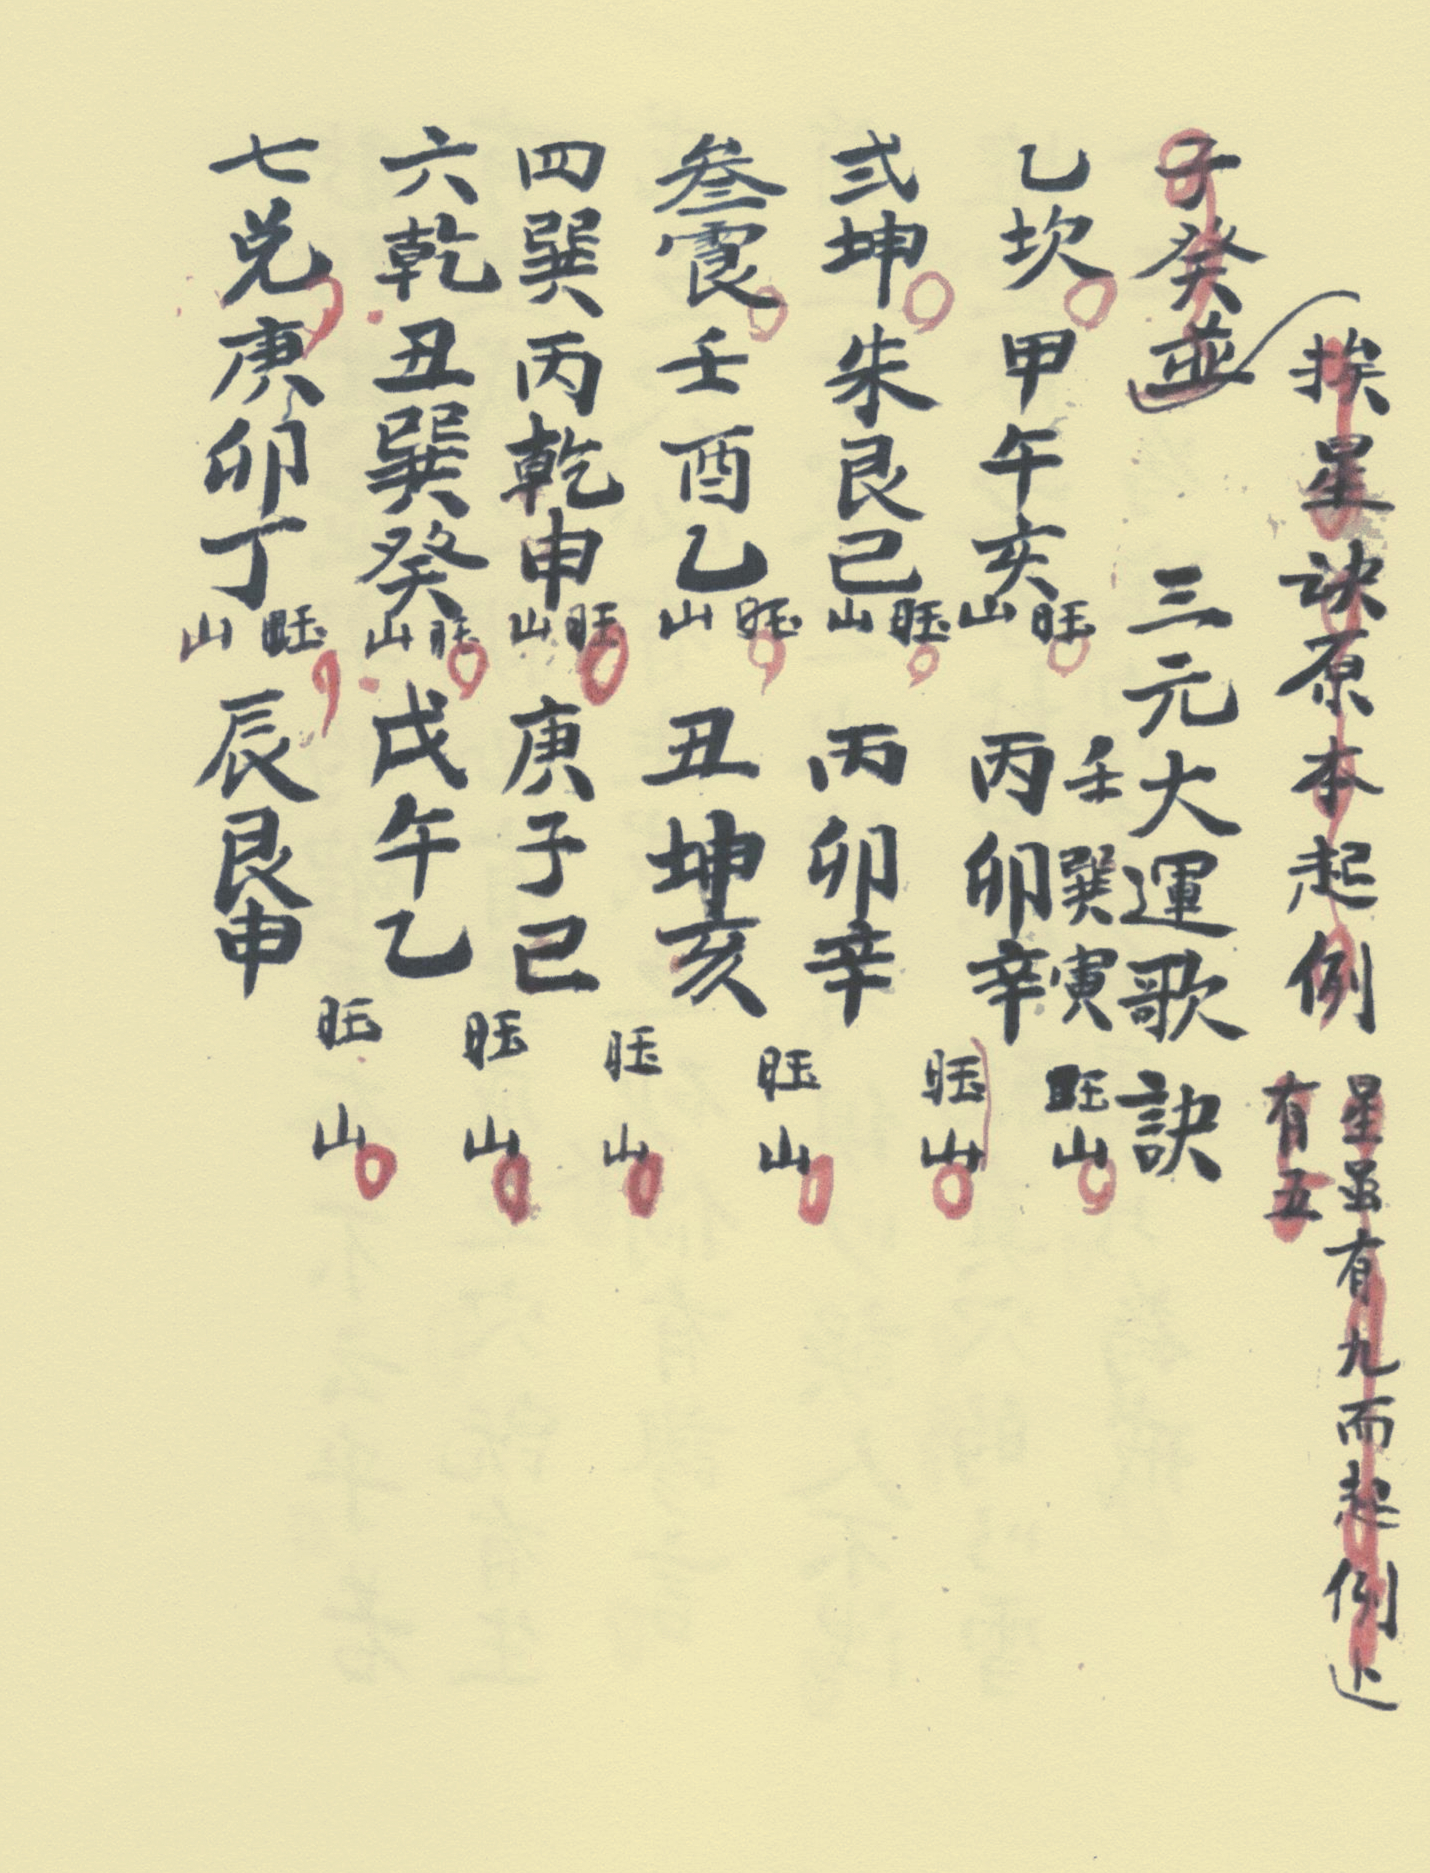 挨星诀原本起例
星虽有九而起例止
有五
子癸並
三元大運歌訣
乙坎 甲午亥 旺山 壬巽寅 旺山
丙卯辛 旺山
弍坤 朱艮己 旺山 丙卯辛
叁震 壬酉乙 旺山 丑坤亥 旺山
四巽 丙乾申 旺山 庚子巳 旺山
六乾 丑巽癸 旺山 戌午乙 旺山
七兑 庚卯丁 旺山 辰艮申 旺山